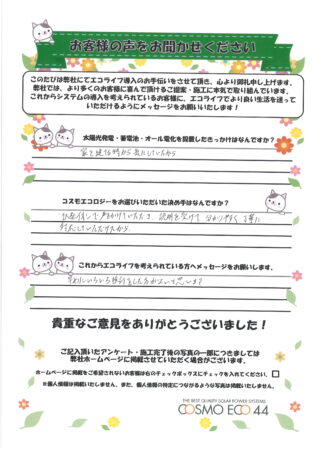 お客様の声をお聞かせください
このたびは弊社にてエコライフ導入のお手伝いをさせて頂き、心より御礼申し上げます。
弊社では、より多くのお客様に喜んで頂けるご提案・施工に本気で取り組んでいます。
これからシステムの導入を考えられているお客様に、エコライフでより良い生活を送って
いただけるようにメッセージをお願いいたします！
太陽光発電・蓄電池・オール電化を設置したきっかけはなんですか？
家を建てる時から気にしていたから
コスモエコロジーをお選びいただいた決め手はなんですか？
声をかけていただき、説明を受けて 分かりやすく 丁寧に
対応していただけたから。
これからエコライフを考えられている方へメッセージをお願いします。
いろいろ検討をした方がよいと思います
貴重なご意見をありがとうございました！
ご記入頂いたアンケート・施工完了後の写真の一部につきましては
弊社ホームページに掲載させていただく場合がございます。
ホームページに掲載をご希望されないお客様は右のチェックボックスにチェックを入れてください。 □
※個人情報は掲載いたしません。また、個人情報の特定につながるような写真は掲載いたしません。
THE BEST QUALITY SOLAR POWER SYSTEMS
COSMO ECO 44